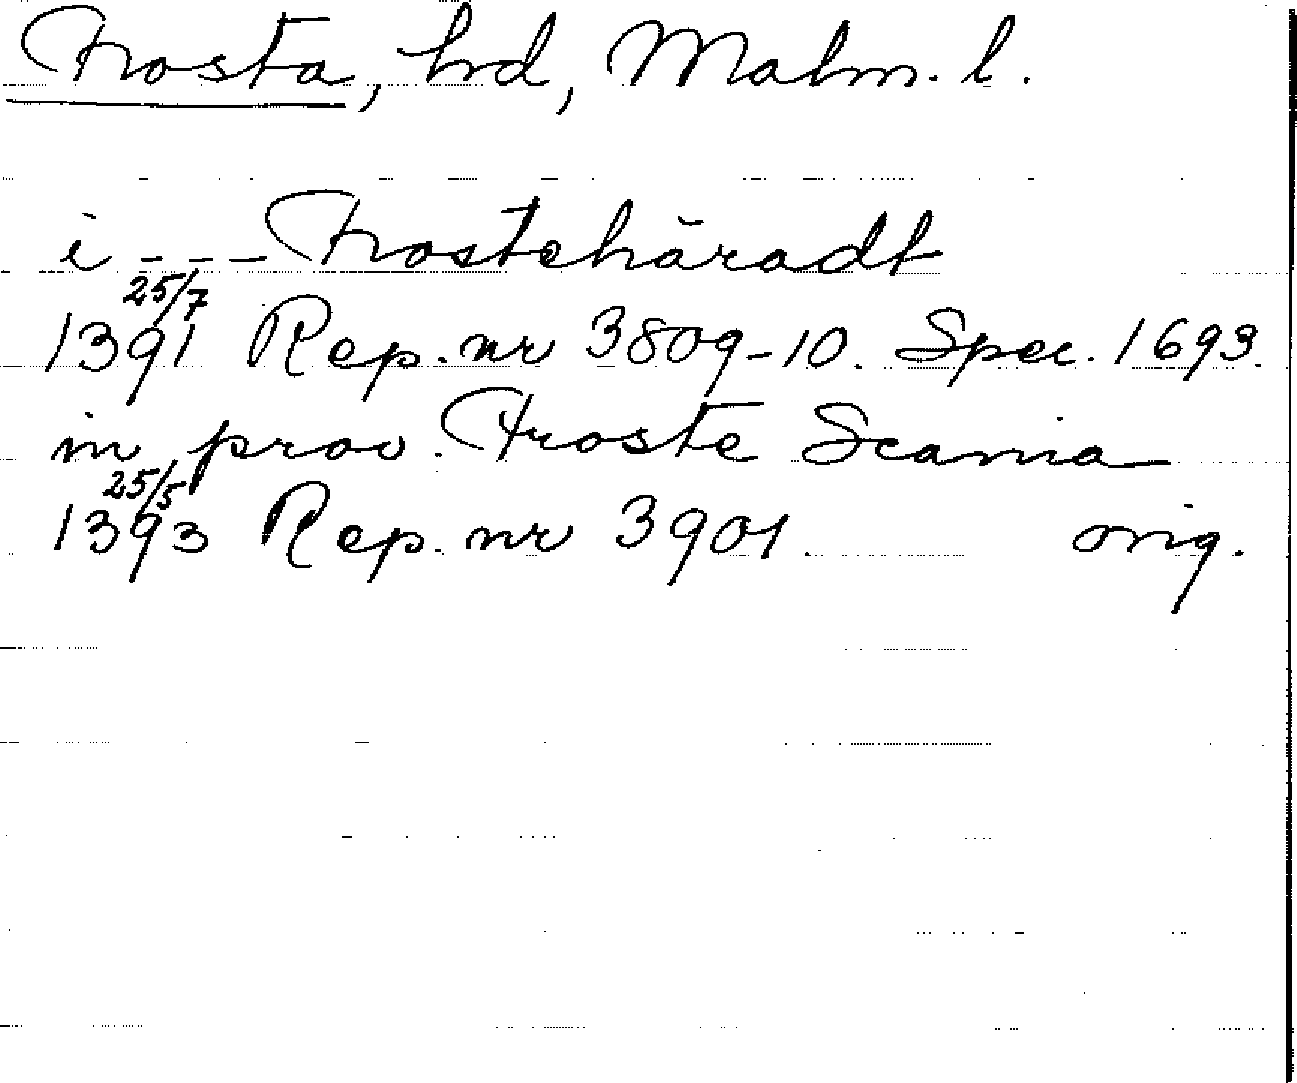 Frosta, hrd, Malm. l.
i - - - Frostehäradt
25/7
1391 Rep. nr 3809-10. Spec. 1693.
in prov. Froste Scania
25/5
1393 Rep. nr 3901. orig.